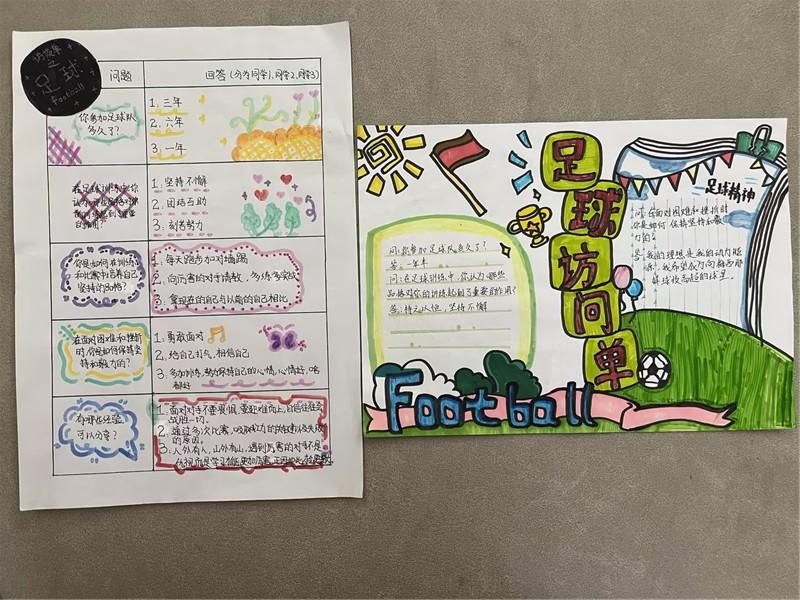 访谈单
之
足球
Football
问题
回答(分为同学1,同学2,同学3)
你参加足球队
多久了?
1. 三年
2. 六年
3. 一年
在足球训练中,你
认为
1. 坚持不懈
2. 团结互助
3. 刻苦努力
你是如何在训练
和比赛中培养自己
坚持的品格?
1. 每天跑步加对墙踢
2. 向厉害的对手请教,多练多实战
3. 拿现在的自己与以前的自己相比
在面对困难和挫折
时,你是如何保持坚
持和毅力的?
1. 勇敢面对
2. 给自己打气,相信自己
3. 多加训练,努力保持自己的心情,心情好,啥
都好
有哪些经验
可以分享?
1. 面对对手不要畏惧,要迎难而上,自信往往会
战胜一切。
2. 通过多次比赛,吸取成功的关键以及失败
的原因。
3. 人外有人,山外有山,遇到厉害的对手不是
足球访问单
问:你参加足球队多久了?
答:一年半
问:在足球训练中,你认为哪些
品格对你的训练起到了重要的作用?
答:持之以恒,坚持不懈
足球精神
问:在面对困难和挫折时
你是如何保持坚持和毅
力的?
答:我的理想是我的动力源
Football